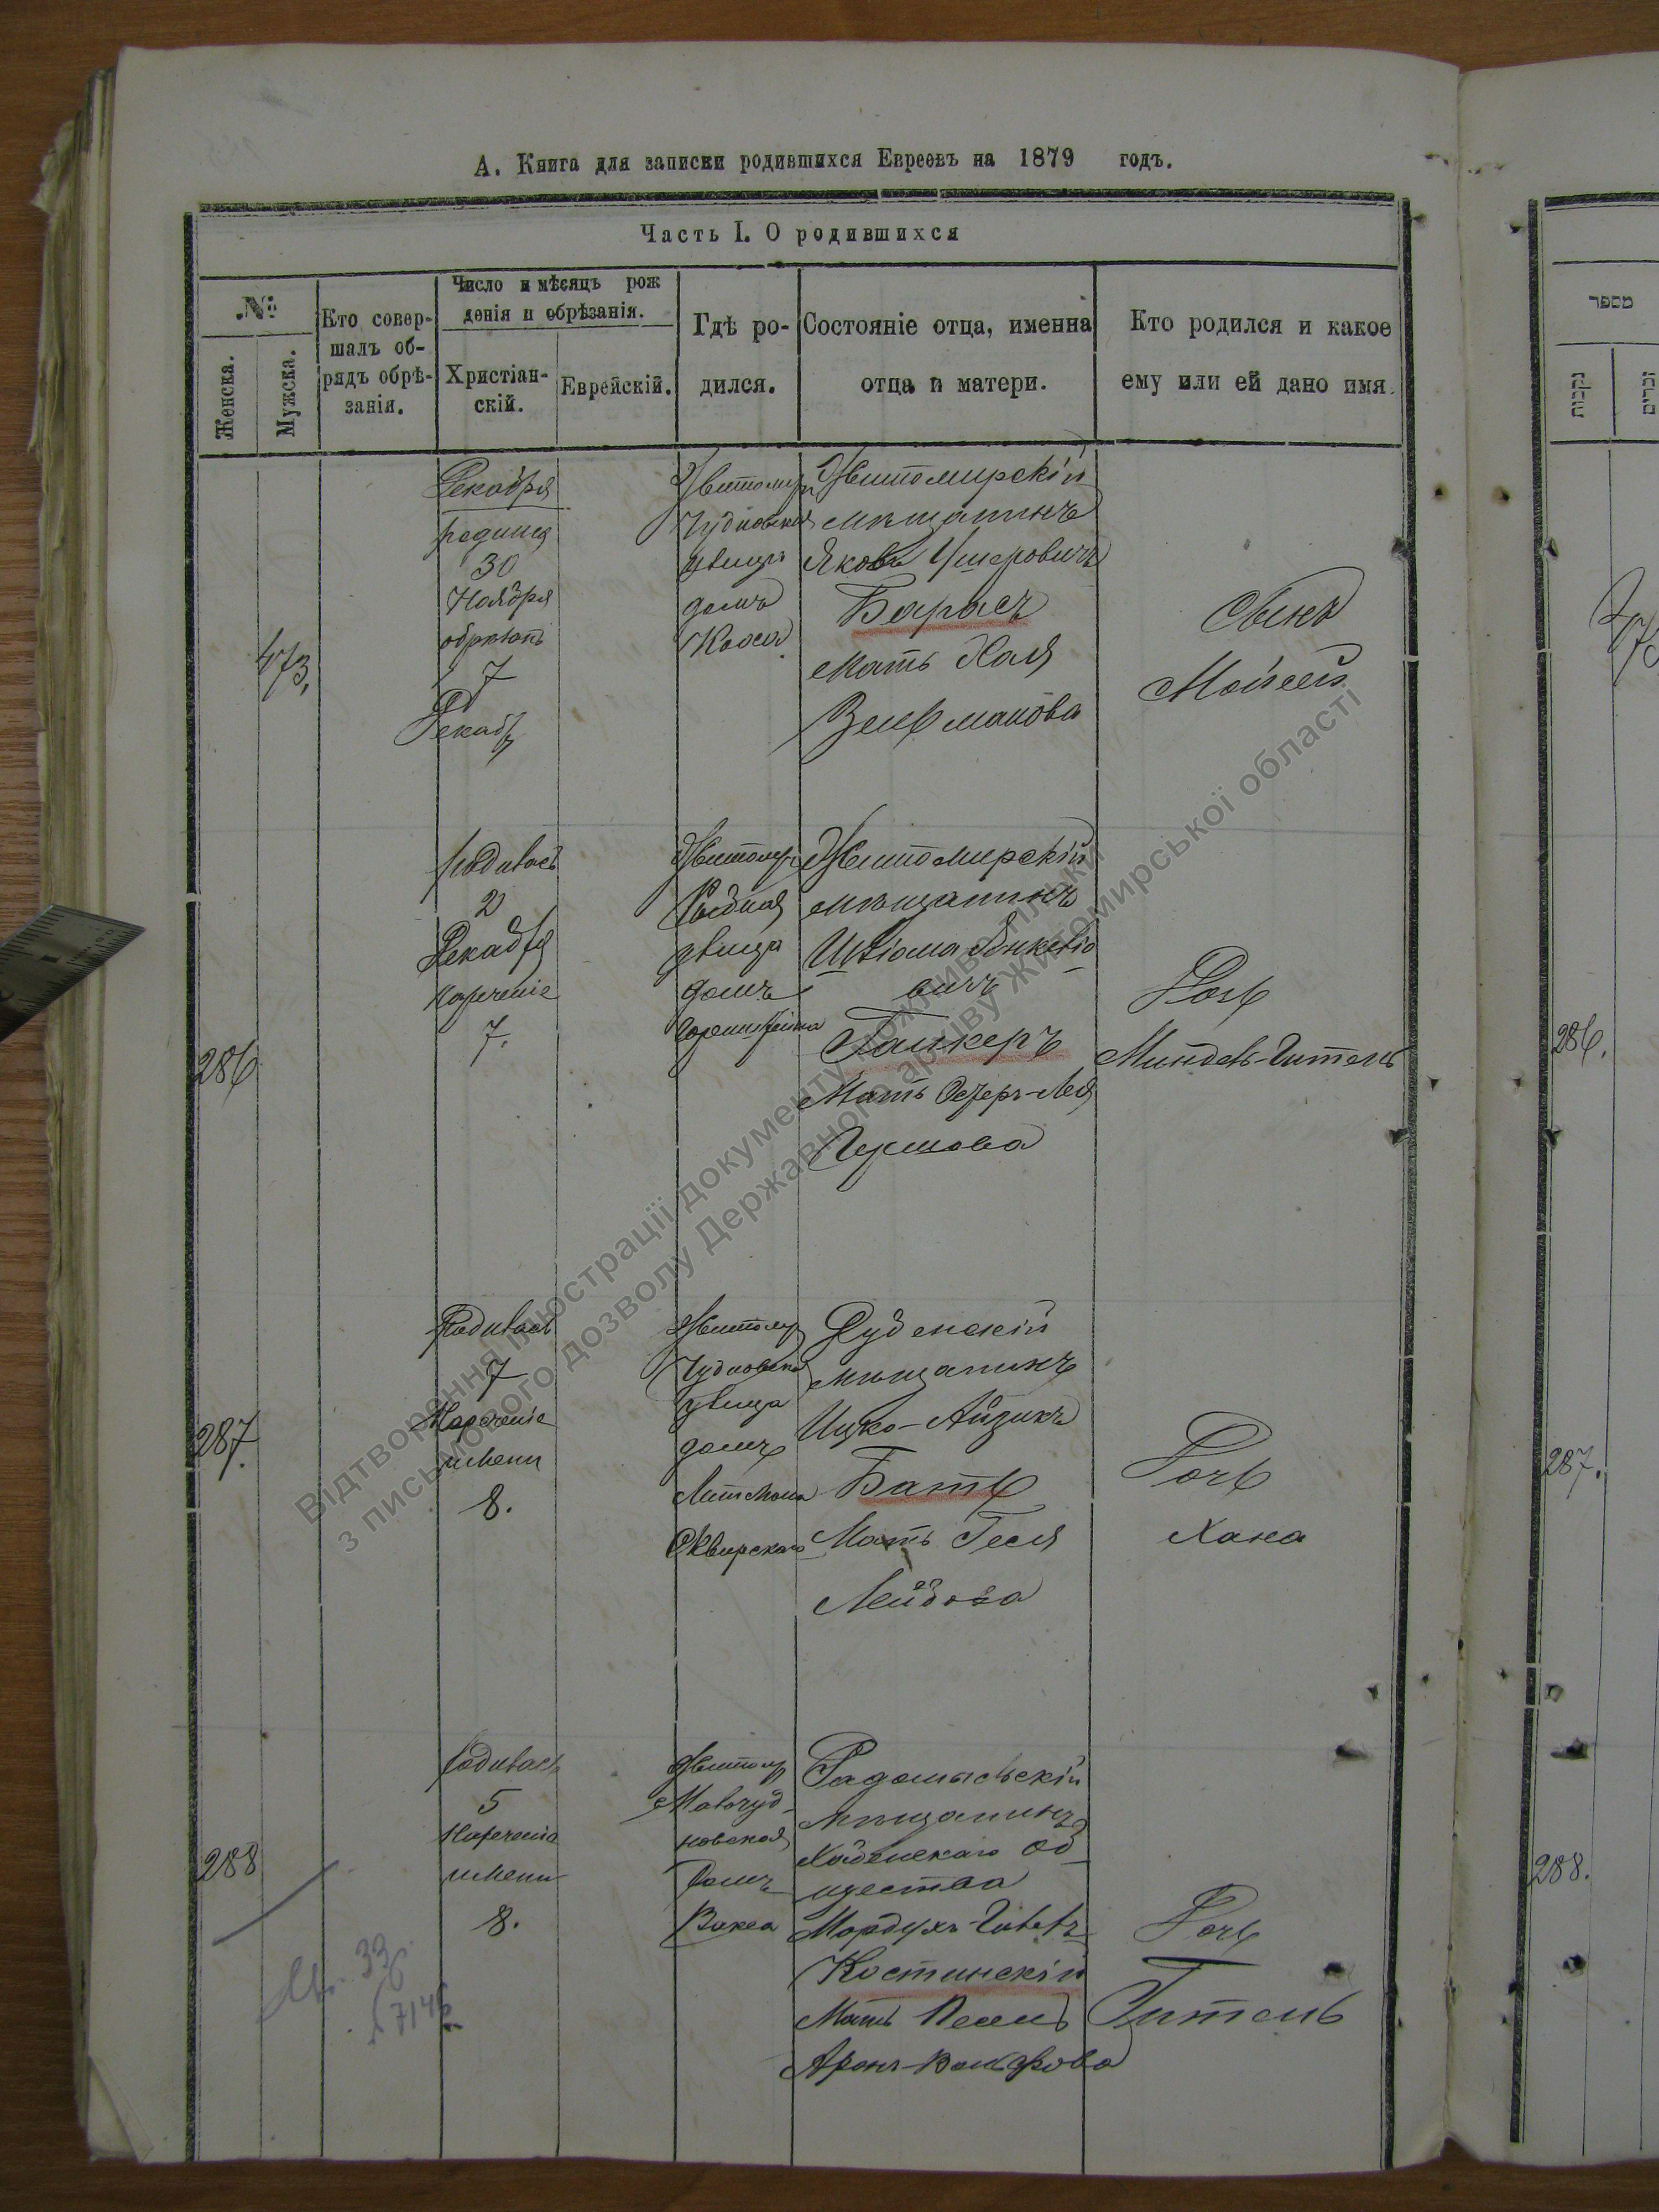 А. Книга для записки родившихся Евреевъ на 1879 годъ.
Часть I. О родившихся
№
Женска.
Мужска.
Кто совер-
шалъ об-
рядъ обрѣ-
занія.
Число и мѣсяцъ рож
денія и обрѣзанія.
Христіан-
скій.
Еврейскій.
Гдѣ ро-
дился.
Состояніе отца, именна
отца и матери.
Кто родился и какое
ему или ей дано имя.
מספר
נקבות
זכרים
473.
Декабря
родился
30
Ноября
обрѣзанъ
7
Декабр
Житомир
Чудновская
улица
домъ
Житомирскій
мѣщанинъ
Яковъ Ушеровичъ
Барасъ
Мать Хая
Зельманова
Сынъ
Моисей
286
Родилась
2
Декабря
Нареченіе
7.
Житомир
улица
домъ
Житомирскій
мѣщанинъ
Шліома Янкеліо
вичъ
Ганкеръ
Мать Эстеръ-Лея
Гершова
Дочь
Миндель-Гитель
286.
287.
Родилась
7
Нареченіе
имени
8.
Житомир
Чудновская
улица
домъ
Сквирскаго
Дубенскій
мѣщанинъ
Ицко-Айзикъ
Мать Геся
Лейбова
Дочь
Хана
287.
288
Родилась
5
Нареченіе
имени
8.
Житомир
Малочуд-
новская
Домъ
Вакса
Радомысльскій
мѣщанинъ
Об-
щества
Мордухъ
Костинскій
Мать Песель
Аронъ-Вольфова
Дочь
Гитель
288.
Відтворення ілюстрації документу можливо тільки
з письмового дозволу Державного архіву Житомирської області